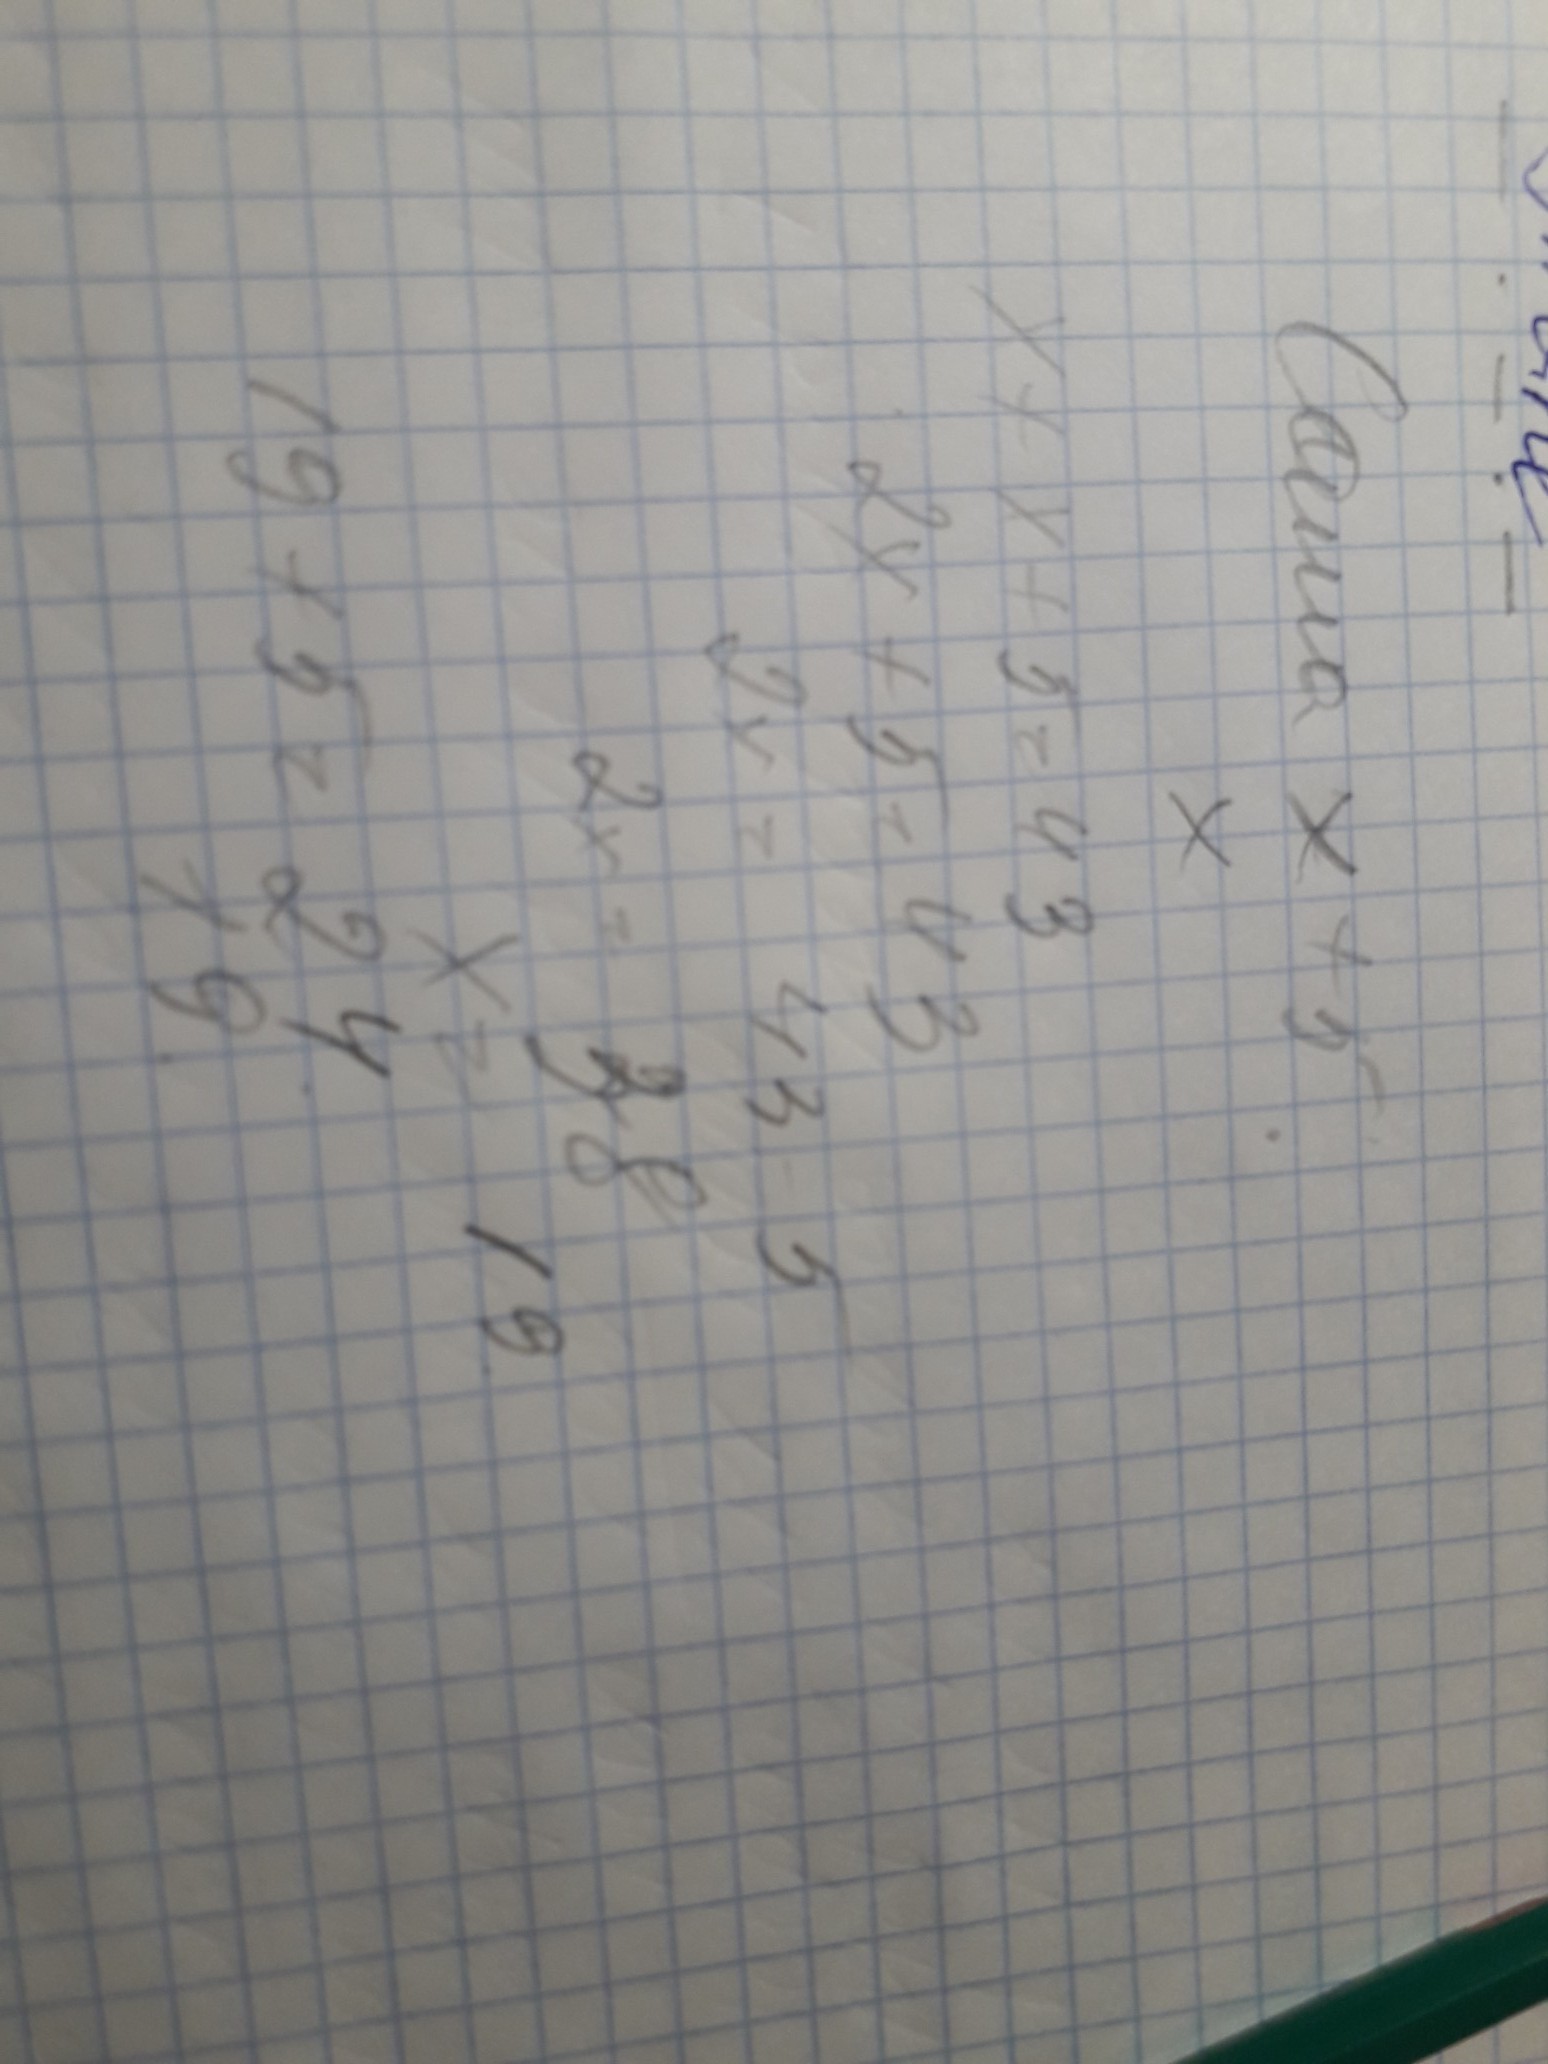 Саша x + 5
x
x + x + 5 = 43
2x + 5 = 43
2x = 43 - 5
2x = 38
x = 19
19 + 5 = 24
19